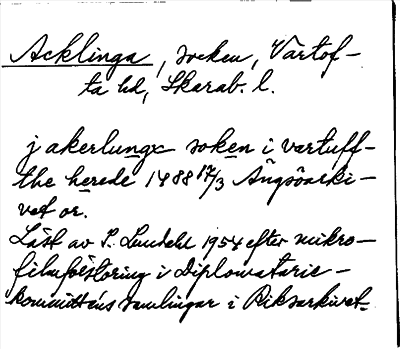 Acklinga, socken, Vartof-
ta hd, Skarab. l.
j akerlunge soken i vartuff-
the herede 1488 17/3 Ängsöarki-
vet or.
Läst av S. Lundahl 1954 efter mikro-
filmförstoring i Diplomatarie-
kommitténs samlingar i Riksarkivet.